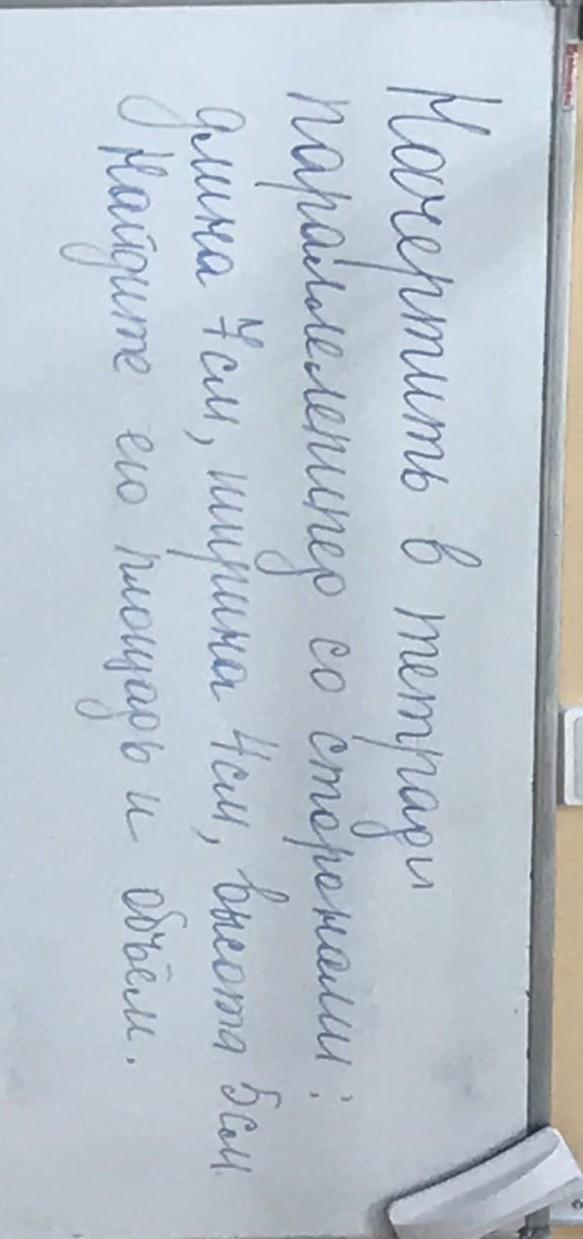 Начертить в тетради
параллелепипед со сторонами:
длина 7см, ширина 4см, высота 5см
Найдите его площадь и объём.